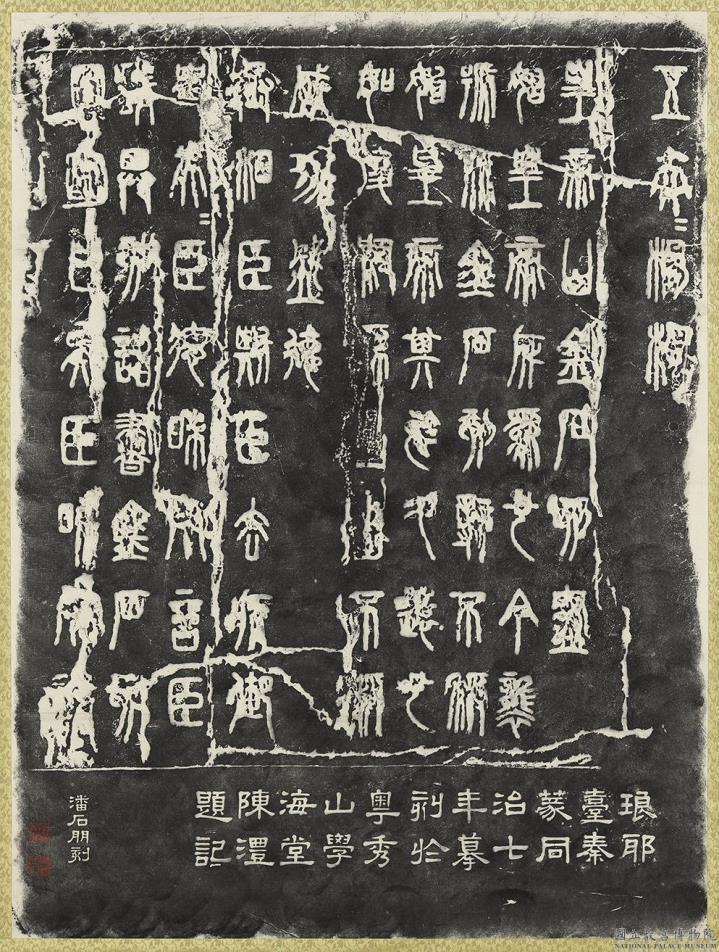 五夫=楊樛
皇帝曰金石刻盡
始皇帝所為也今襲
號而金石刻辭不稱
始皇帝其於久遠也
如後嗣為之者不稱
成功盛德
丞相臣斯臣去疾御
史夫=臣德昧死言臣
請具刻詔書金石刻
因明白矣臣昧死請
琅耶
臺秦
篆同
治七
年摹
刻於
粵秀
山學
海堂
陳澧
題記
潘石朋刻
國立故宮博物院
NATIONAL PALACE MUSEUM